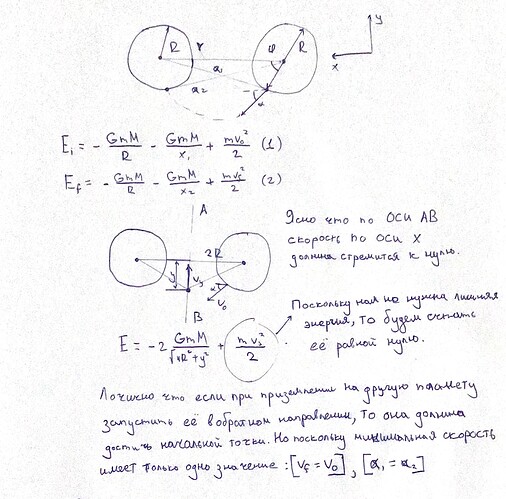 y
R
r
φ
R
x
α₁
α₂
α
E_i = - GmM/R - GmM/x₁ + mv₀²/2 (1)
E_f = - GmM/R - GmM/x₂ + mv_f²/2 (2)
A
Ясно что по оси AB
скорость по оси x
должна стремится к нулю.
2R
y
v_y
α
v₀
B
Поскольку нам не нужна лишняя
энергия, то будем считать
её равной нулю.
E = -2 GmM/√(4R²+y²) + mv_y²/2 .
Логично что если при приземлении на другую планету
запустить её в обратном направлении, то она должна
достичь начальной точки. Но поскольку минимальная скорость
имеет только одно значение: [v_f = v₀], [α₁ = α₂]